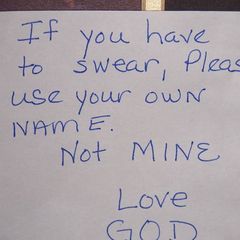 If you have
to swear, Pleas
use your own
NAME.
Not MINE
Love
GOD